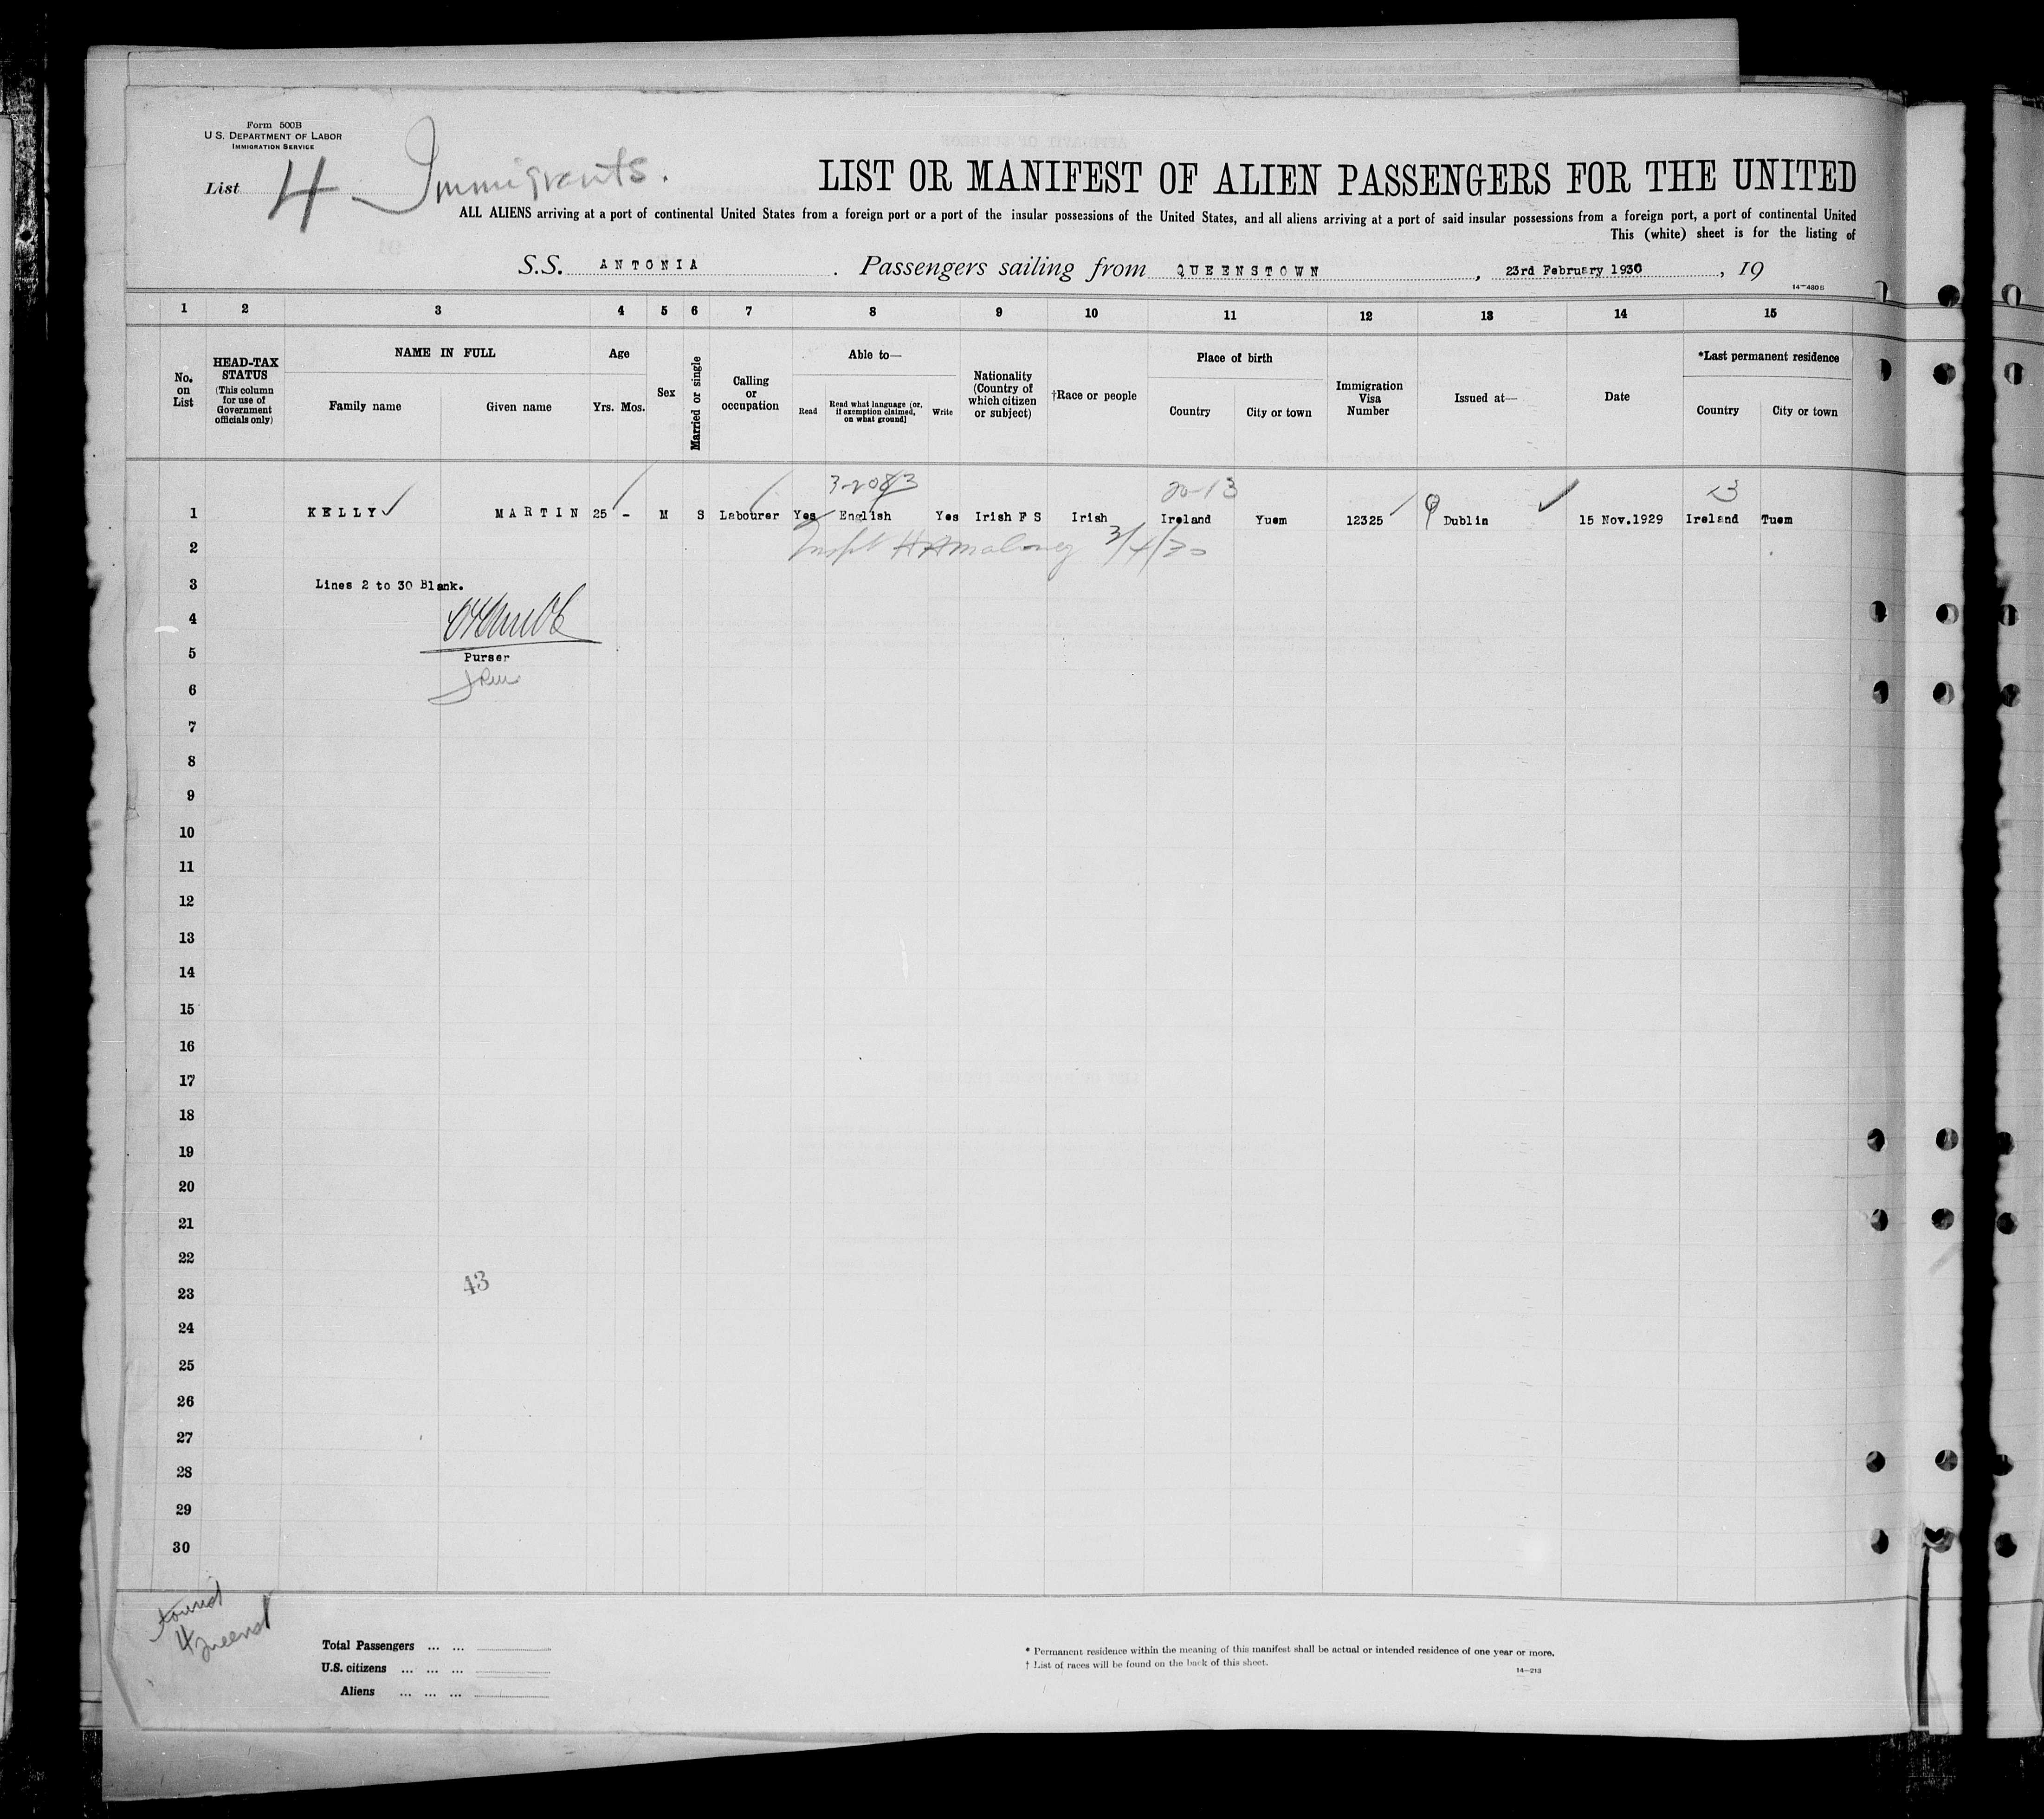 Form 500B
U.S. DEPARTMENT OF LABOR
IMMIGRATION SERVICE
List 4 Immigrants.
LIST OR MANIFEST OF ALIEN PASSENGERS FOR THE UNITED
ALL ALIENS arriving at a port of continental United States from a foreign port or a port of the insular possessions of the United States, and all aliens arriving at a port of said insular possessions from a foreign port, a port of continental United
This (white) sheet is for the listing of
S.S. ANTONIA . Passengers sailing from QUEENSTOWN , 23rd February 1930 , 19
14-480B
1 2 3 4 5 6 7 8 9 10 11 12 13 14 15
No. on List
HEAD-TAX STATUS (This column for use of Government officials only)
NAME IN FULL
Family name Given name
Age
Yrs. Mos.
Sex
Married or single
Calling or occupation
Able to—
Read
Read what language [or, if exemption claimed, on what ground]
Write
Nationality (Country of which citizen or subject)
†Race or people
Place of birth
Country City or town
Immigration Visa Number
Issued at—
Date
*Last permanent residence
Country City or town
20-13
1 KELLY MARTIN 25 - M S Labourer Yes English Yes Irish F S Irish Ireland Yuem 12325 Dublin 15 Nov.1929 Ireland Tuem
2
3 Lines 2 to 30 Blank.
4
5 Purser
6
7
8
9
10
11
12
13
14
15
16
17
18
19
20
21
22
43
23
24
25
26
27
28
29
30
Total Passengers ... ...
U.S. citizens ... ... ...
Aliens ... ... ...
* Permanent residence within the meaning of this manifest shall be actual or intended residence of one year or more.
† List of races will be found on the back of this sheet.
14-213